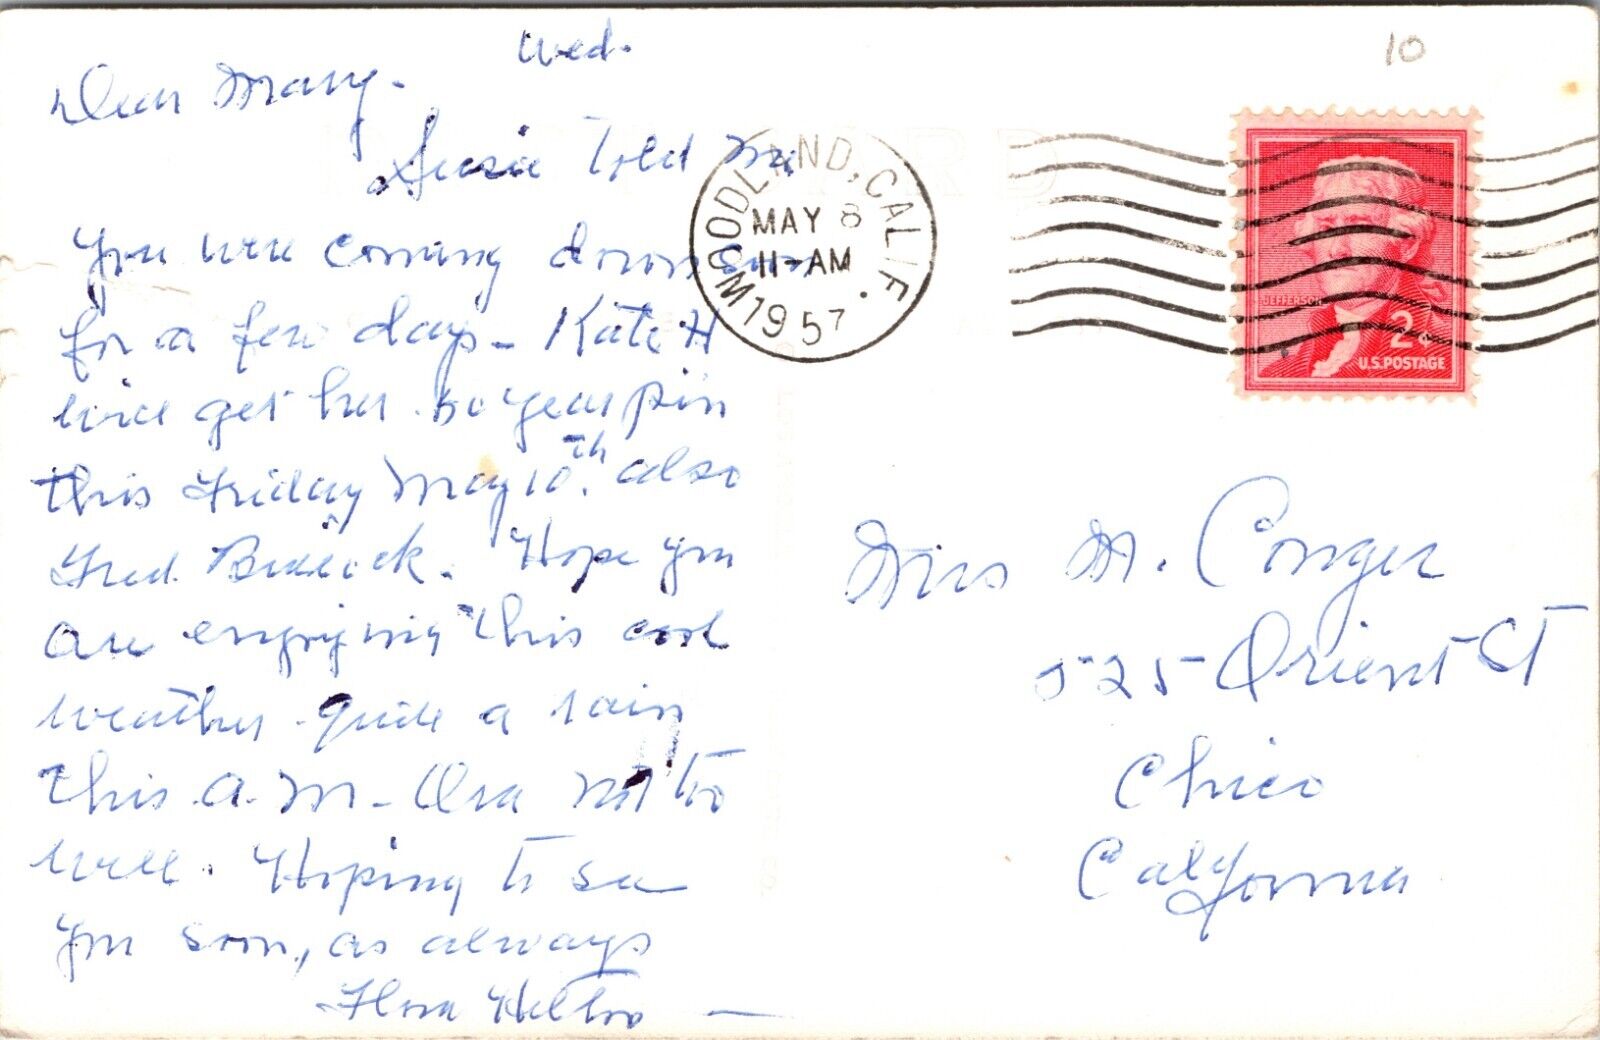 Wed.
10
Dear Mary.
Susie Told Me
You were coming down soon
for a few days - Kate H
will get her 50 year pin
this Friday May 10th. also
Fred Bullock. Hope you
are enjoying this cool
weather. quite a rain
this A.M - Ora not too
well. Hoping to see
you soon, as always
Flora Helton
WOODLAND, CALIF.
MAY 8
11-AM
1957
JEFFERSON
2¢
U.S. POSTAGE
Mrs M. Conger
525 Orient St
Chico
California